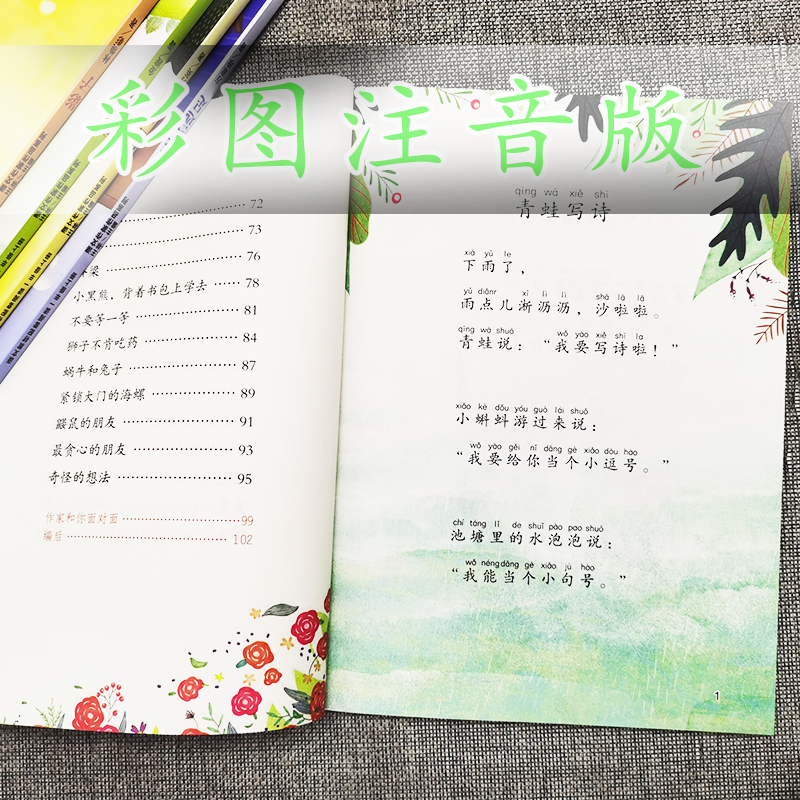 彩图注音版
72
73
梁 76
小黑熊，背着书包上学去 78
不要等一等 81
狮子不肯吃药 84
蜗牛和兔子 87
紧锁大门的海螺 89
鼹鼠的朋友 91
最贪心的朋友 93
奇怪的想法 95
作家和你面对面 99
编后 102
qīng wā xiě shī
青蛙写诗
xià yǔ le
下雨了，
yǔ diǎnr xī lì lì shā lā lā
雨点儿淅沥沥，沙啦啦。
qīng wā shuō wǒ yào xiě shī la
青蛙说：“我要写诗啦！”
xiǎo kē dǒu yóu guò lái shuō
小蝌蚪游过来说：
wǒ yào gěi nǐ dāng gè xiǎo dòu hào
“我要给你当个小逗号。”
chí táng lǐ de shuǐ pào pao shuō
池塘里的水泡泡说：
wǒ néng dāng gè xiǎo jù hào
“我能当个小句号。”
1